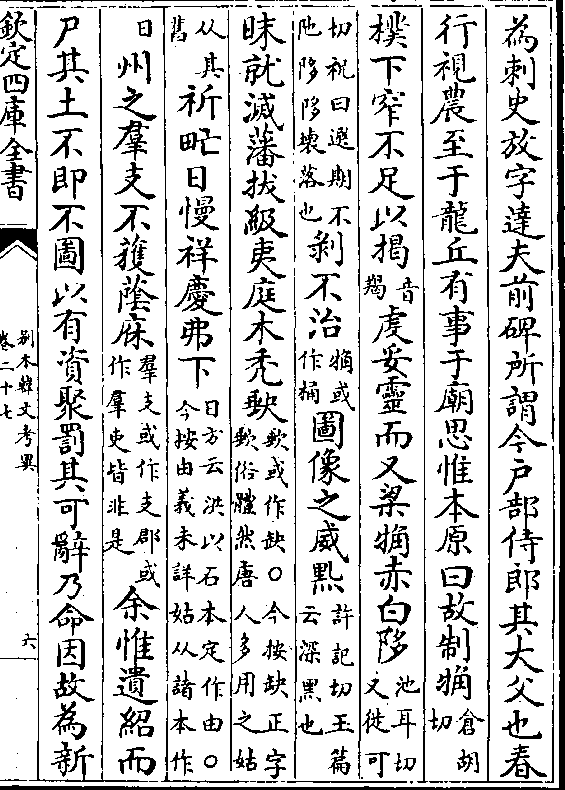 為刺史放字達夫前碑所謂今戶部侍郎其大父也春
行視農至于龍丘有事于廟思惟本原曰故制觕倉胡切
樸下窄不足以揭音羯虔妥靈而又梁觕赤白陊池耳切又徒可
切祝曰選期不陁陊陊壞落也剝不治觕或作桶圖像之威許記切玉篇云深黑也
昧就滅藩拔級夷庭木禿或作缺○今按缺正字俗體然唐人多用之姑
从其舊祈甿日慢祥慶弗下日方云洪以石本定作由○今按由義未詳姑从諸本作
日州之羣支不獲蔭庥羣支或作支郡或作羣吏皆非是余惟遺紹而
尸其土不即不圖以有資聚罰其可辭乃命因故為新
欽定四庫全書
別本韓文考異
卷二十七
六